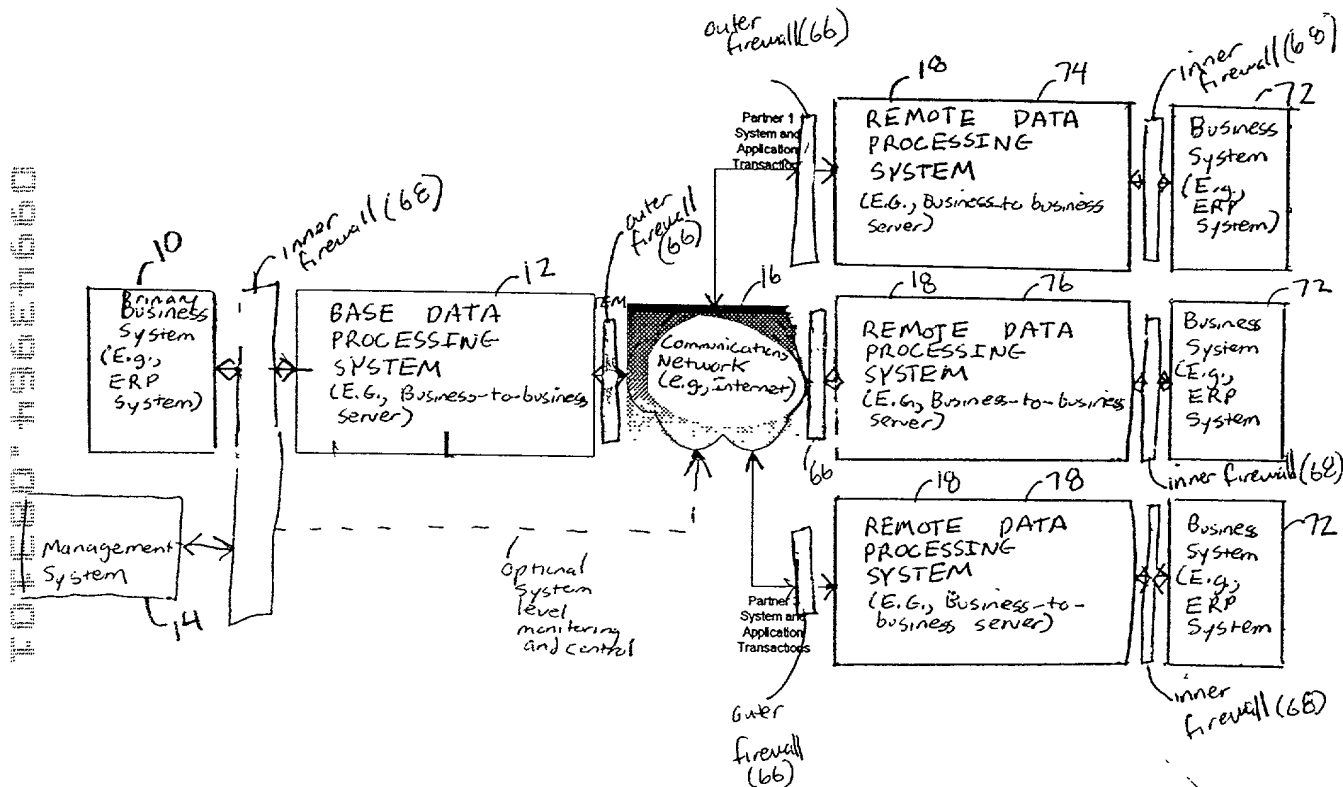 outer
firewall(66)
18
74
inner
firewall(68)
72
Partner 1
System and
Application
Transaction
REMOTE DATA
PROCESSING
SYSTEM
(E.G., Business-to business
server)
Business
System
(E.g.,
ERP
System)
inner
firewall (68)
outer
firewall
(66)
10
Primary
Business
System
(E.g.,
ERP
System)
12
BASE DATA
PROCESSING
SYSTEM
(E.G., Business-to-business
server)
EM
16
Communications
Network
(e.g., internet)
66
18
76
REMOTE DATA
PROCESSING
SYSTEM
(E.G., Business-to-business
server)
72
Business
System
(E.g.,
ERP
System
inner firewall (68)
Management
System
14
optional
system
level
monitoring
and control
Partner
System and
Application
Transactions
18
78
REMOTE DATA
PROCESSING
SYSTEM
(E.G., Business-to-
business server)
Business
System
(E.g.,
ERP
System
72
outer
firewall
(66)
inner
firewall (68)